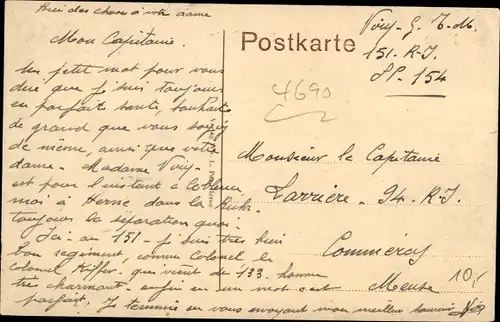 Bien des choses à votre dame
Mon Capitaine.
Un petit mot pour vous
dire que je suis toujours
en parfaite santé, souhaite
de grand que vous soyez
de même, ainsi que votre
dame. Madame Viry
est pour l'instant à Coblence
moi à Herne dans la Ruhr
toujours la séparation quoi.
Ici au 151 - je suis très bien
bon regiment, comme Colonel le
colonel Kiffer qui vient de 133. homme
très charmant - enfin en un mot c'est
parfait. Je termine en vous envoyant mon meilleur souvenir Viry
Postkarte
Viry S. T. M.
151. R. I.
SP. 154
4690
Monsieur le Capitaine
Larrière - 94. R. I.
Commercy
Meuse
10,-